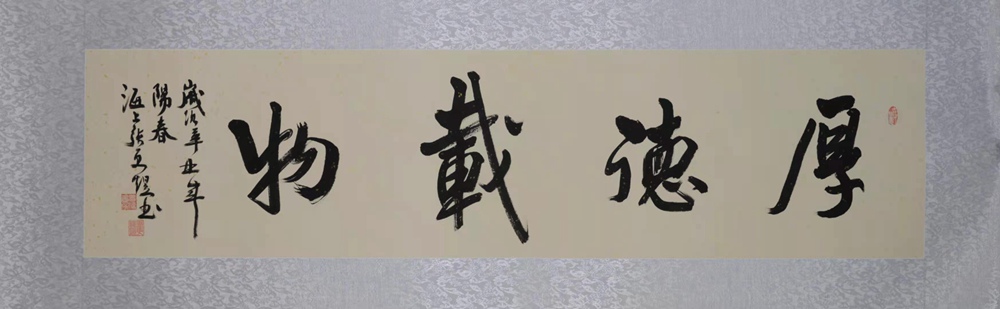 厚德載物
歲次辛丑年
陽春
海上張
書